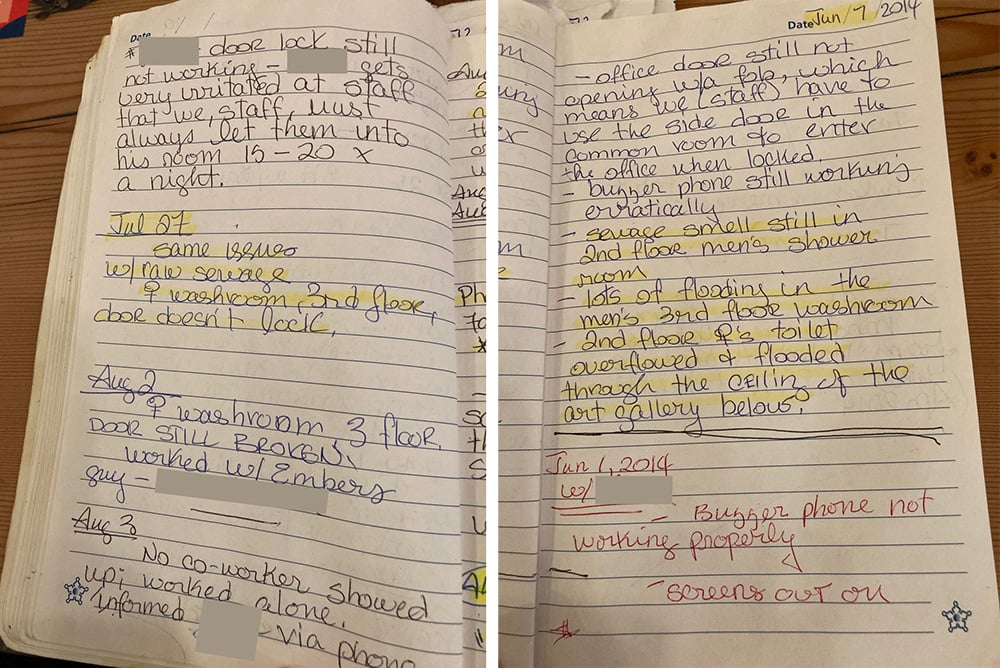 Date
* door lock still
not working – gets
very irritated at staff
that we, staff, must
always let them into
his room 15 – 20 x
a night.
Jul 27
same issues
w/ raw sewage
♀ washroom, 3rd floor,
door doesn't lock.
Aug 2
♀ washroom, 3 floor,
DOOR STILL BROKEN!
worked w/ Embers
guy –
Aug 3
No co-worker showed
up; worked alone.
informed via phone
Date Jun / 7 / 2014
- office door still not
opening w/a fob, which
means we (staff) have to
use the side door in the
common room to enter
the office when locked.
- buzzer phone still working
erratically
- sewage smell still in
2nd floor men's shower
room
- lots of flooding in the
men's 3rd floor washroom
- 2nd floor ♀'s toilet
overflowed & flooded
through the ceiling of the
art gallery below.
Jun 1, 2014
w/
- Buzzer phone not
working properly
- screens out on